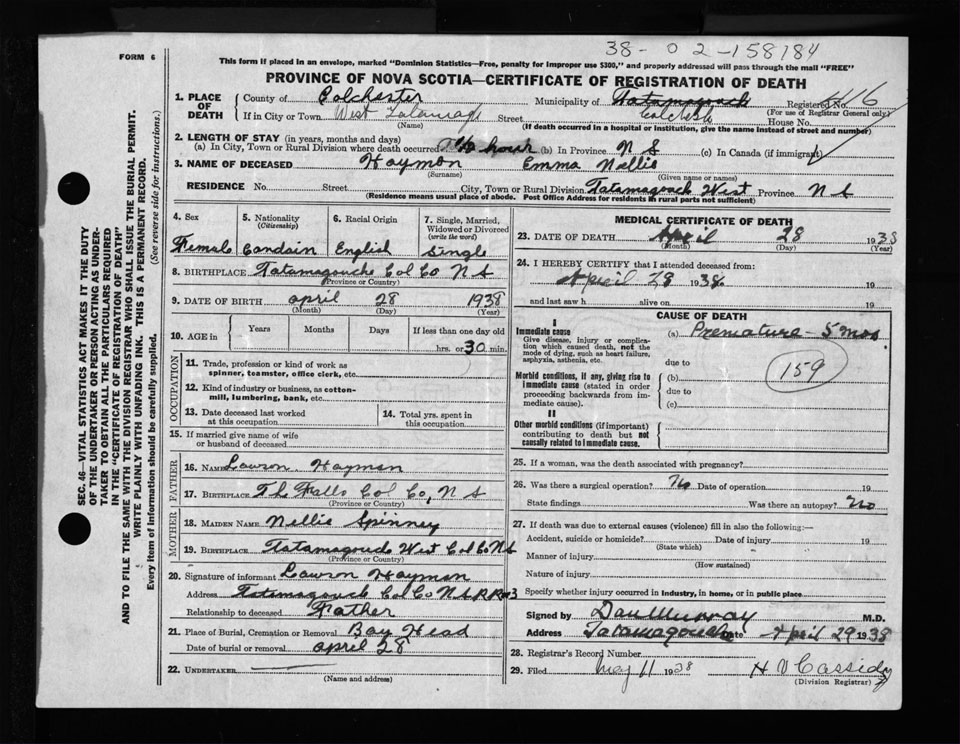 38-02-158184
FORM 6
This form if placed in an envelope, marked "Dominion Statistics—Free, penalty for improper use $300," and properly addressed will pass through the mail "FREE"
PROVINCE OF NOVA SCOTIA—CERTIFICATE OF REGISTRATION OF DEATH
SEC. 46—VITAL STATISTICS ACT MAKES IT THE DUTY
OF THE UNDERTAKER OR PERSON ACTING AS UNDER-
TAKER TO OBTAIN ALL THE PARTICULARS REQUIRED
IN THE "CERTIFICATE OF REGISTRATION OF DEATH"
AND TO FILE THE SAME WITH THE DIVISION REGISTRAR WHO SHALL ISSUE THE BURIAL PERMIT.
WRITE PLAINLY WITH UNFADING INK. THIS IS A PERMANENT RECORD.
Every item of information should be carefully supplied. (See reverse side for instructions.)
1. PLACE OF DEATH County of Colchester Municipality of Tatamagouch Registered No. 416
(For use of Registrar General only)
If in City or Town West Street Colchester House No.
(Name) (If death occurred in a hospital or institution, give the name instead of street and number)
2. LENGTH OF STAY (in years, months and days)
(a) In City, Town or Rural Division where death occurred ½ hour (b) In Province N S (c) In Canada (if immigrant)
3. NAME OF DECEASED Hayman Emma Nellie
(Surname) (Given name or names)
RESIDENCE No. Street City, Town or Rural Division Tatamagouch West Province N S
(Residence means usual place of abode. Post Office Address for residents in rural parts not sufficient)
4. Sex 5. Nationality (Citizenship) 6. Racial Origin 7. Single, Married, Widowed or Divorced (write the word)
Female Candain English Single
8. BIRTHPLACE Tatamagouche Col Co N S
(Province or Country)
9. DATE OF BIRTH April 28 1938
(Month) (Day) (Year)
10. AGE in Years Months Days If less than one day old
hrs. or 30 min.
OCCUPATION
11. Trade, profession or kind of work as
spinner, teamster, office clerk, etc.
12. Kind of industry or business, as cotton-
mill, lumbering, bank, etc.
13. Date deceased last worked
at this occupation
14. Total yrs. spent in
this occupation
15. If married give name of wife
or husband of deceased
FATHER
16. NAME Lawson Hayman
17. BIRTHPLACE The Falls Col Co, N S
(Province or Country)
MOTHER
18. MAIDEN NAME Nellie Spinney
19. BIRTHPLACE Tatamagouch West Col Co N S
(Province or Country)
20. Signature of informant Lawson Hayman
Address Tatamagouch Col Co N S R R #3
Relationship to deceased Father
21. Place of Burial, Cremation or Removal Bay Head
Date of burial or removal april 28
22. UNDERTAKER
(Name and address)
MEDICAL CERTIFICATE OF DEATH
23. DATE OF DEATH April 28 1938
(Month) (Day) (Year)
24. I HEREBY CERTIFY that I attended deceased from:
April 28 1938 19
and last saw h alive on 19
CAUSE OF DEATH
I
Immediate cause
Give disease, injury or complica-
tion which caused death, not the
mode of dying, such as heart failure,
asphyxia, asthenia, etc.
(a) Premature - 5 mos
due to
Morbid conditions, if any, giving rise to
immediate cause (stated in order
proceeding backwards from im-
mediate cause).
(b)
due to
(c)
159
II
Other morbid conditions (if important)
contributing to death but not
causally related to immediate cause.
25. If a woman, was the death associated with pregnancy?
26. Was there a surgical operation? No Date of operation 19
State findings Was there an autopsy? No
27. If death was due to external causes (violence) fill in also the following:—
Accident, suicide or homicide? Date of injury 19
(State which)
Manner of injury
(How sustained)
Nature of injury
Specify whether injury occurred in industry, in home, or in public place
Signed by Dan Murray M.D.
Address Tatamagouche Date April 29 1938
28. Registrar's Record Number
29. Filed May 11 1938 H V Cassidy
(Division Registrar)